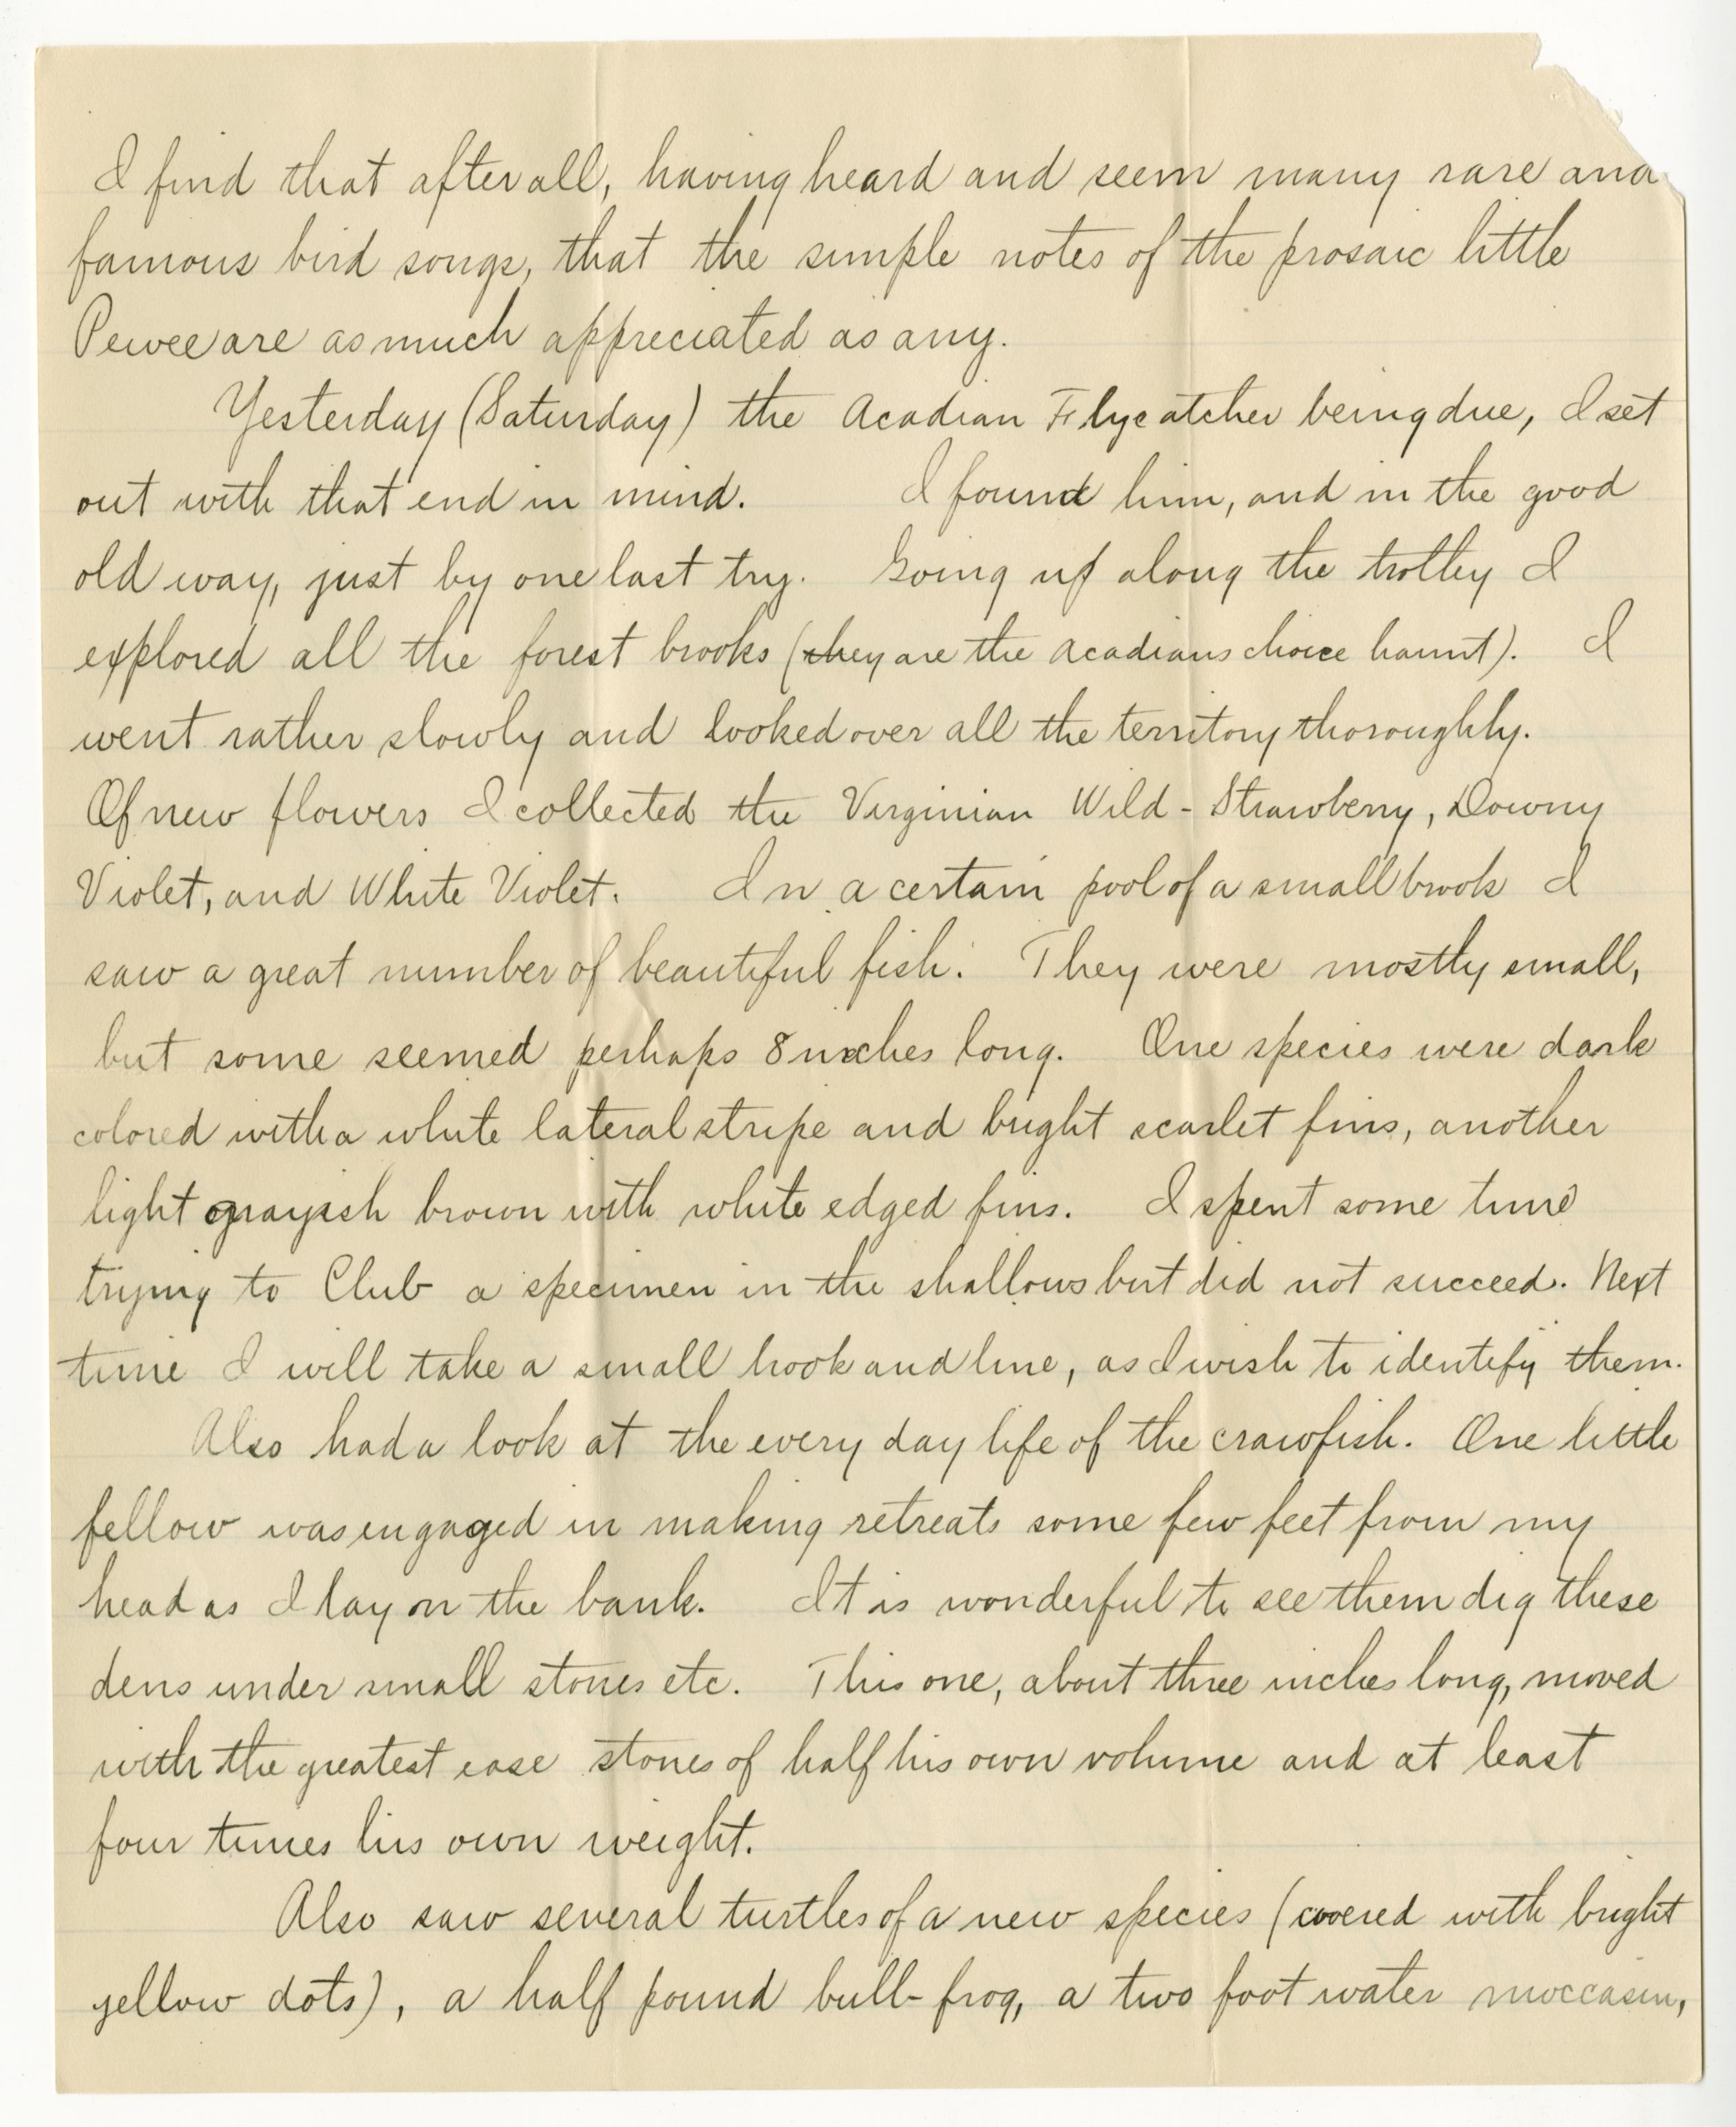 I find that after all, having heard and seem many rare and
famous bird songs, that the simple notes of the prosaic little
Pewee are as much appreciated as any.
Yesterday (Saturday) the Acadian Flycatcher being due, I set
out with that end in mind. I found him, and in the good
old way, just by one last try. Going up along the trolley I
explored all the forest brooks (they are the Acadians choice haunt). I
went rather slowly and looked over all the territory thoroughly.
Of new flowers I collected the Virginian Wild-Strawberry, Downy
Violet, and White Violet. In a certain pool of a small brook I
saw a great number of beautiful fish. They were mostly small,
but some seemed perhaps 8 inches long. One species were dark
colored with a white lateral stripe and bright scarlet fins, another
light grayish brown with white edged fins. I spent some time
trying to Club a specimen in the shallows but did not succeed. Next
time I will take a small hook and line, as I wish to identify them.
Also had a look at the every day life of the crawfish. One little
fellow was engaged in making retreats some few feet from my
head as I lay on the bank. It is wonderful to see them dig these
dens under small stones etc. This one, about three inches long, moved
with the greatest ease stones of half his own volume and at least
four times his own weight.
Also saw several turtles of a new species (covered with bright
yellow dots), a half pound bull-frog, a two foot water moccasin,